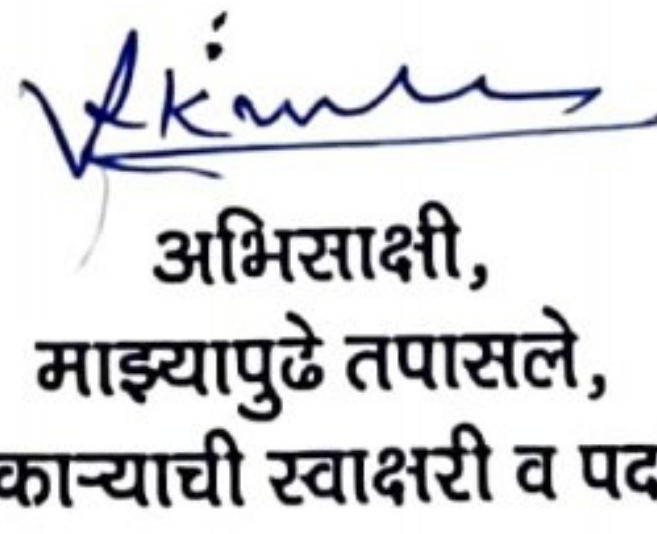 अभिसाक्षी,
माझ्यापुढे तपासले,
काऱ्याची स्वाक्षरी व पद